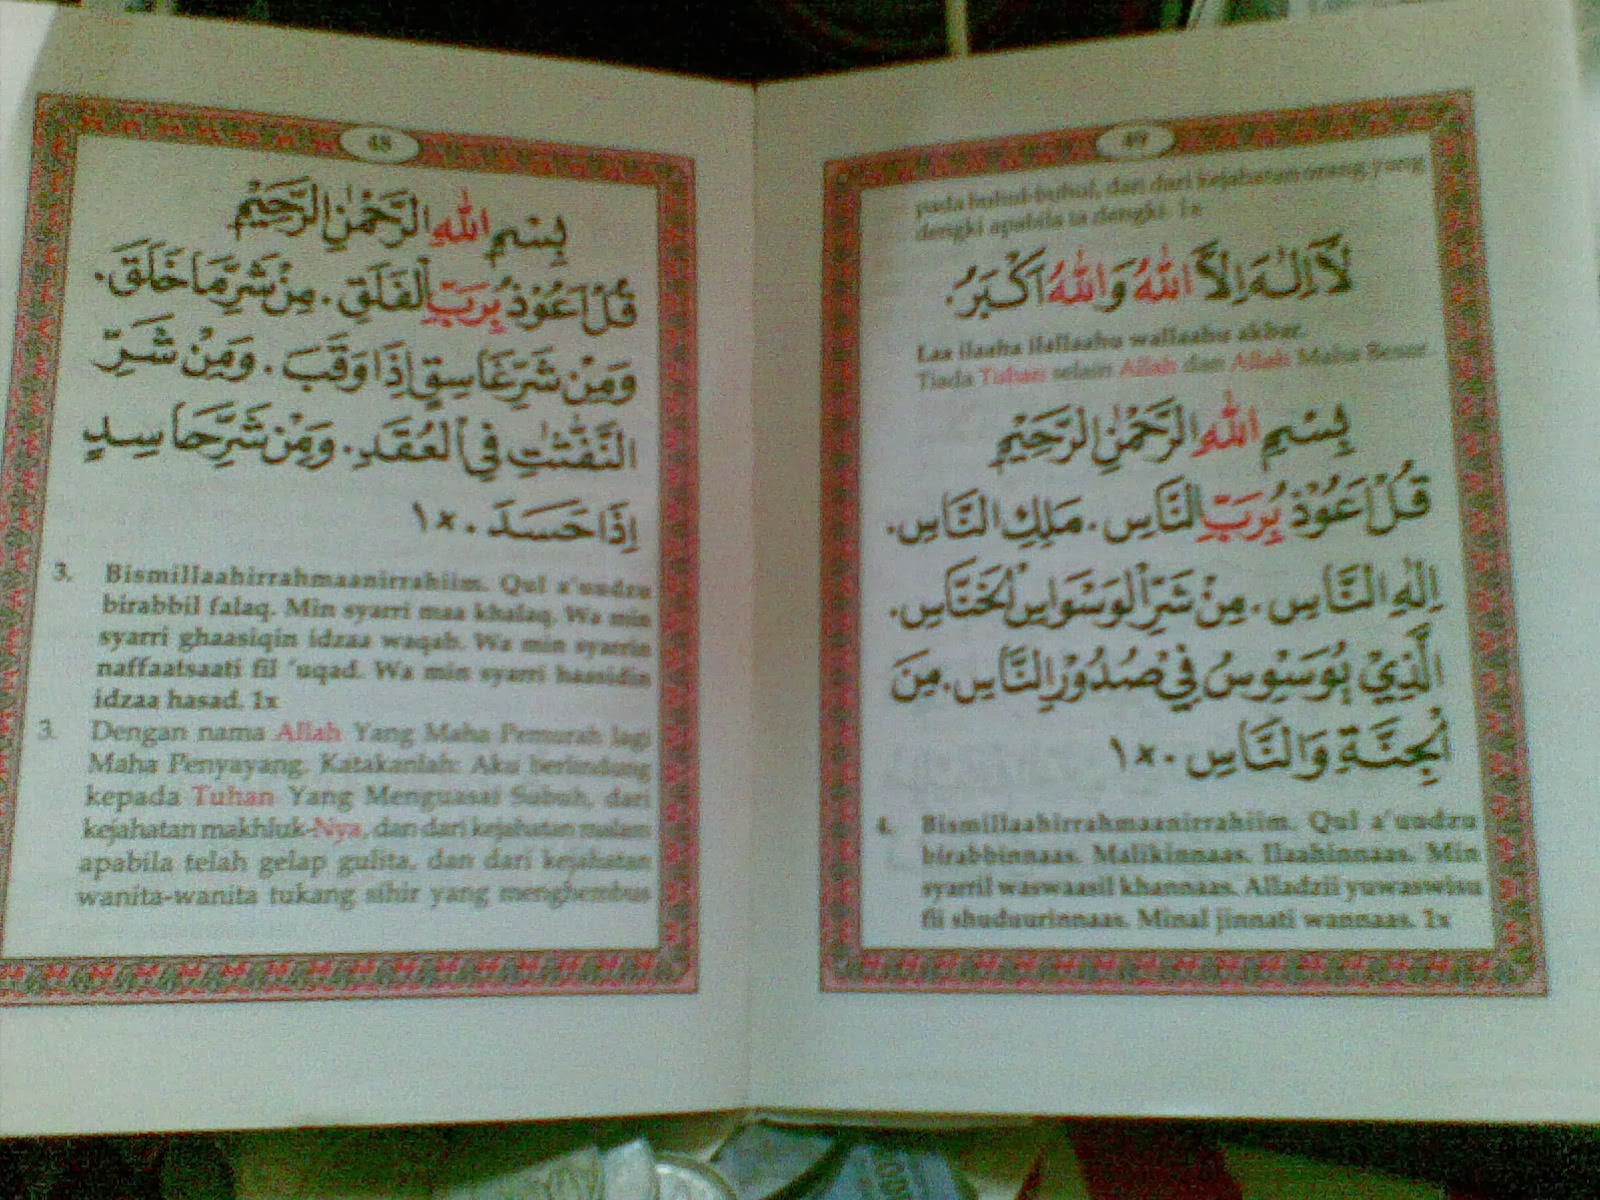 48
بِسْمِ اللهِ الرَّحْمٰنِ الرَّحِيْمِ
قُلْ اَعُوْذُ بِرَبِّ الْفَلَقِ. مِنْ شَرِّ مَا خَلَقَ.
وَمِنْ شَرِّ غَاسِقٍ اِذَا وَقَبَ. وَمِنْ شَرِّ
النَّفّٰثٰتِ فِي الْعُقَدِ. وَمِنْ شَرِّ حَاسِدٍ
اِذَا حَسَدَ. ×١
3. Bismillaahirrahmaanirrahiim. Qul a'uudzu
birabbil falaq. Min syarri maa khalaq. Wa min
syarri ghaasiqin idzaa waqab. Wa min syarrin
naffaatsaati fil 'uqad. Wa min syarri haasidin
idzaa hasad. 1x
3. Dengan nama Allah Yang Maha Pemurah lagi
Maha Penyayang. Katakanlah: Aku berlindung
kepada Tuhan Yang Menguasai Subuh, dari
kejahatan makhluk-Nya, dan dari kejahatan malam
apabila telah gelap gulita, dan dari kejahatan
wanita-wanita tukang sihir yang menghembus
49
pada buhul-buhul, dan dari kejahatan orang yang
dengki apabila ia dengki. 1x
لَآ اِلٰهَ اِلَّا اللهُ وَاللهُ اَكْبَرُ.
Laa ilaaha ilallaahu wallaahu akbar.
Tiada Tuhan selain Allah dan Allah Maha Besar.
بِسْمِ اللهِ الرَّحْمٰنِ الرَّحِيْمِ
قُلْ اَعُوْذُ بِرَبِّ النَّاسِ. مَلِكِ النَّاسِ.
اِلٰهِ النَّاسِ. مِنْ شَرِّ الْوَسْوَاسِ الْخَنَّاسِ.
الَّذِيْ يُوَسْوِسُ فِيْ صُدُوْرِ النَّاسِ. مِنَ
الْجِنَّةِ وَالنَّاسِ. ×١
4. Bismillaahirrahmaanirrahiim. Qul a'uudzu
birabbinnaas. Malikinnaas. Ilaahinnaas. Min
syarril waswaasil khannaas. Alladzii yuwaswisu
fii shuduurinnaas. Minal jinnati wannaas. 1x